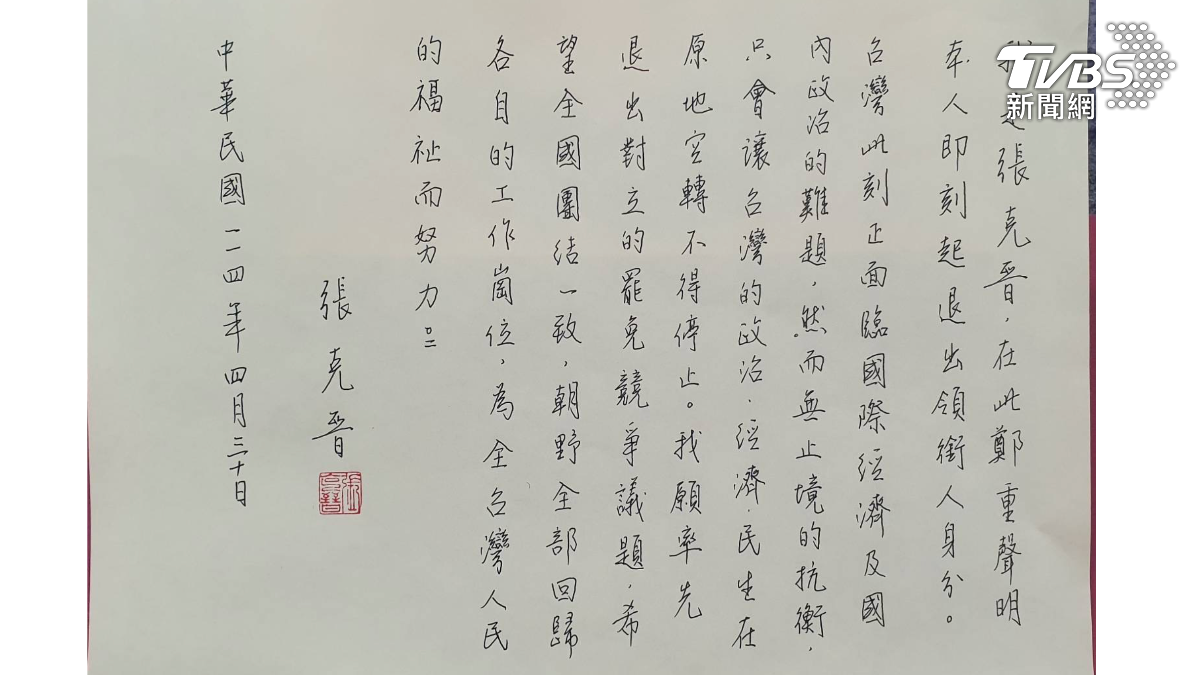 張克晋，在此鄭重聲明
本人即刻起退出領銜人身分。
台灣此刻正面臨國際經濟及國
內政治的難題，然而無止境的抗衡，
只會讓台灣的政治．經濟．民生在
原地空轉不得停止。我願率先
退出對立的罷免競爭議題，希
望全國團結一致，朝野全部回歸
各自的工作崗位，為全台灣人民
的福祉而努力。
張克晋
中華民國一一四年四月三十日
TVBS
新聞網